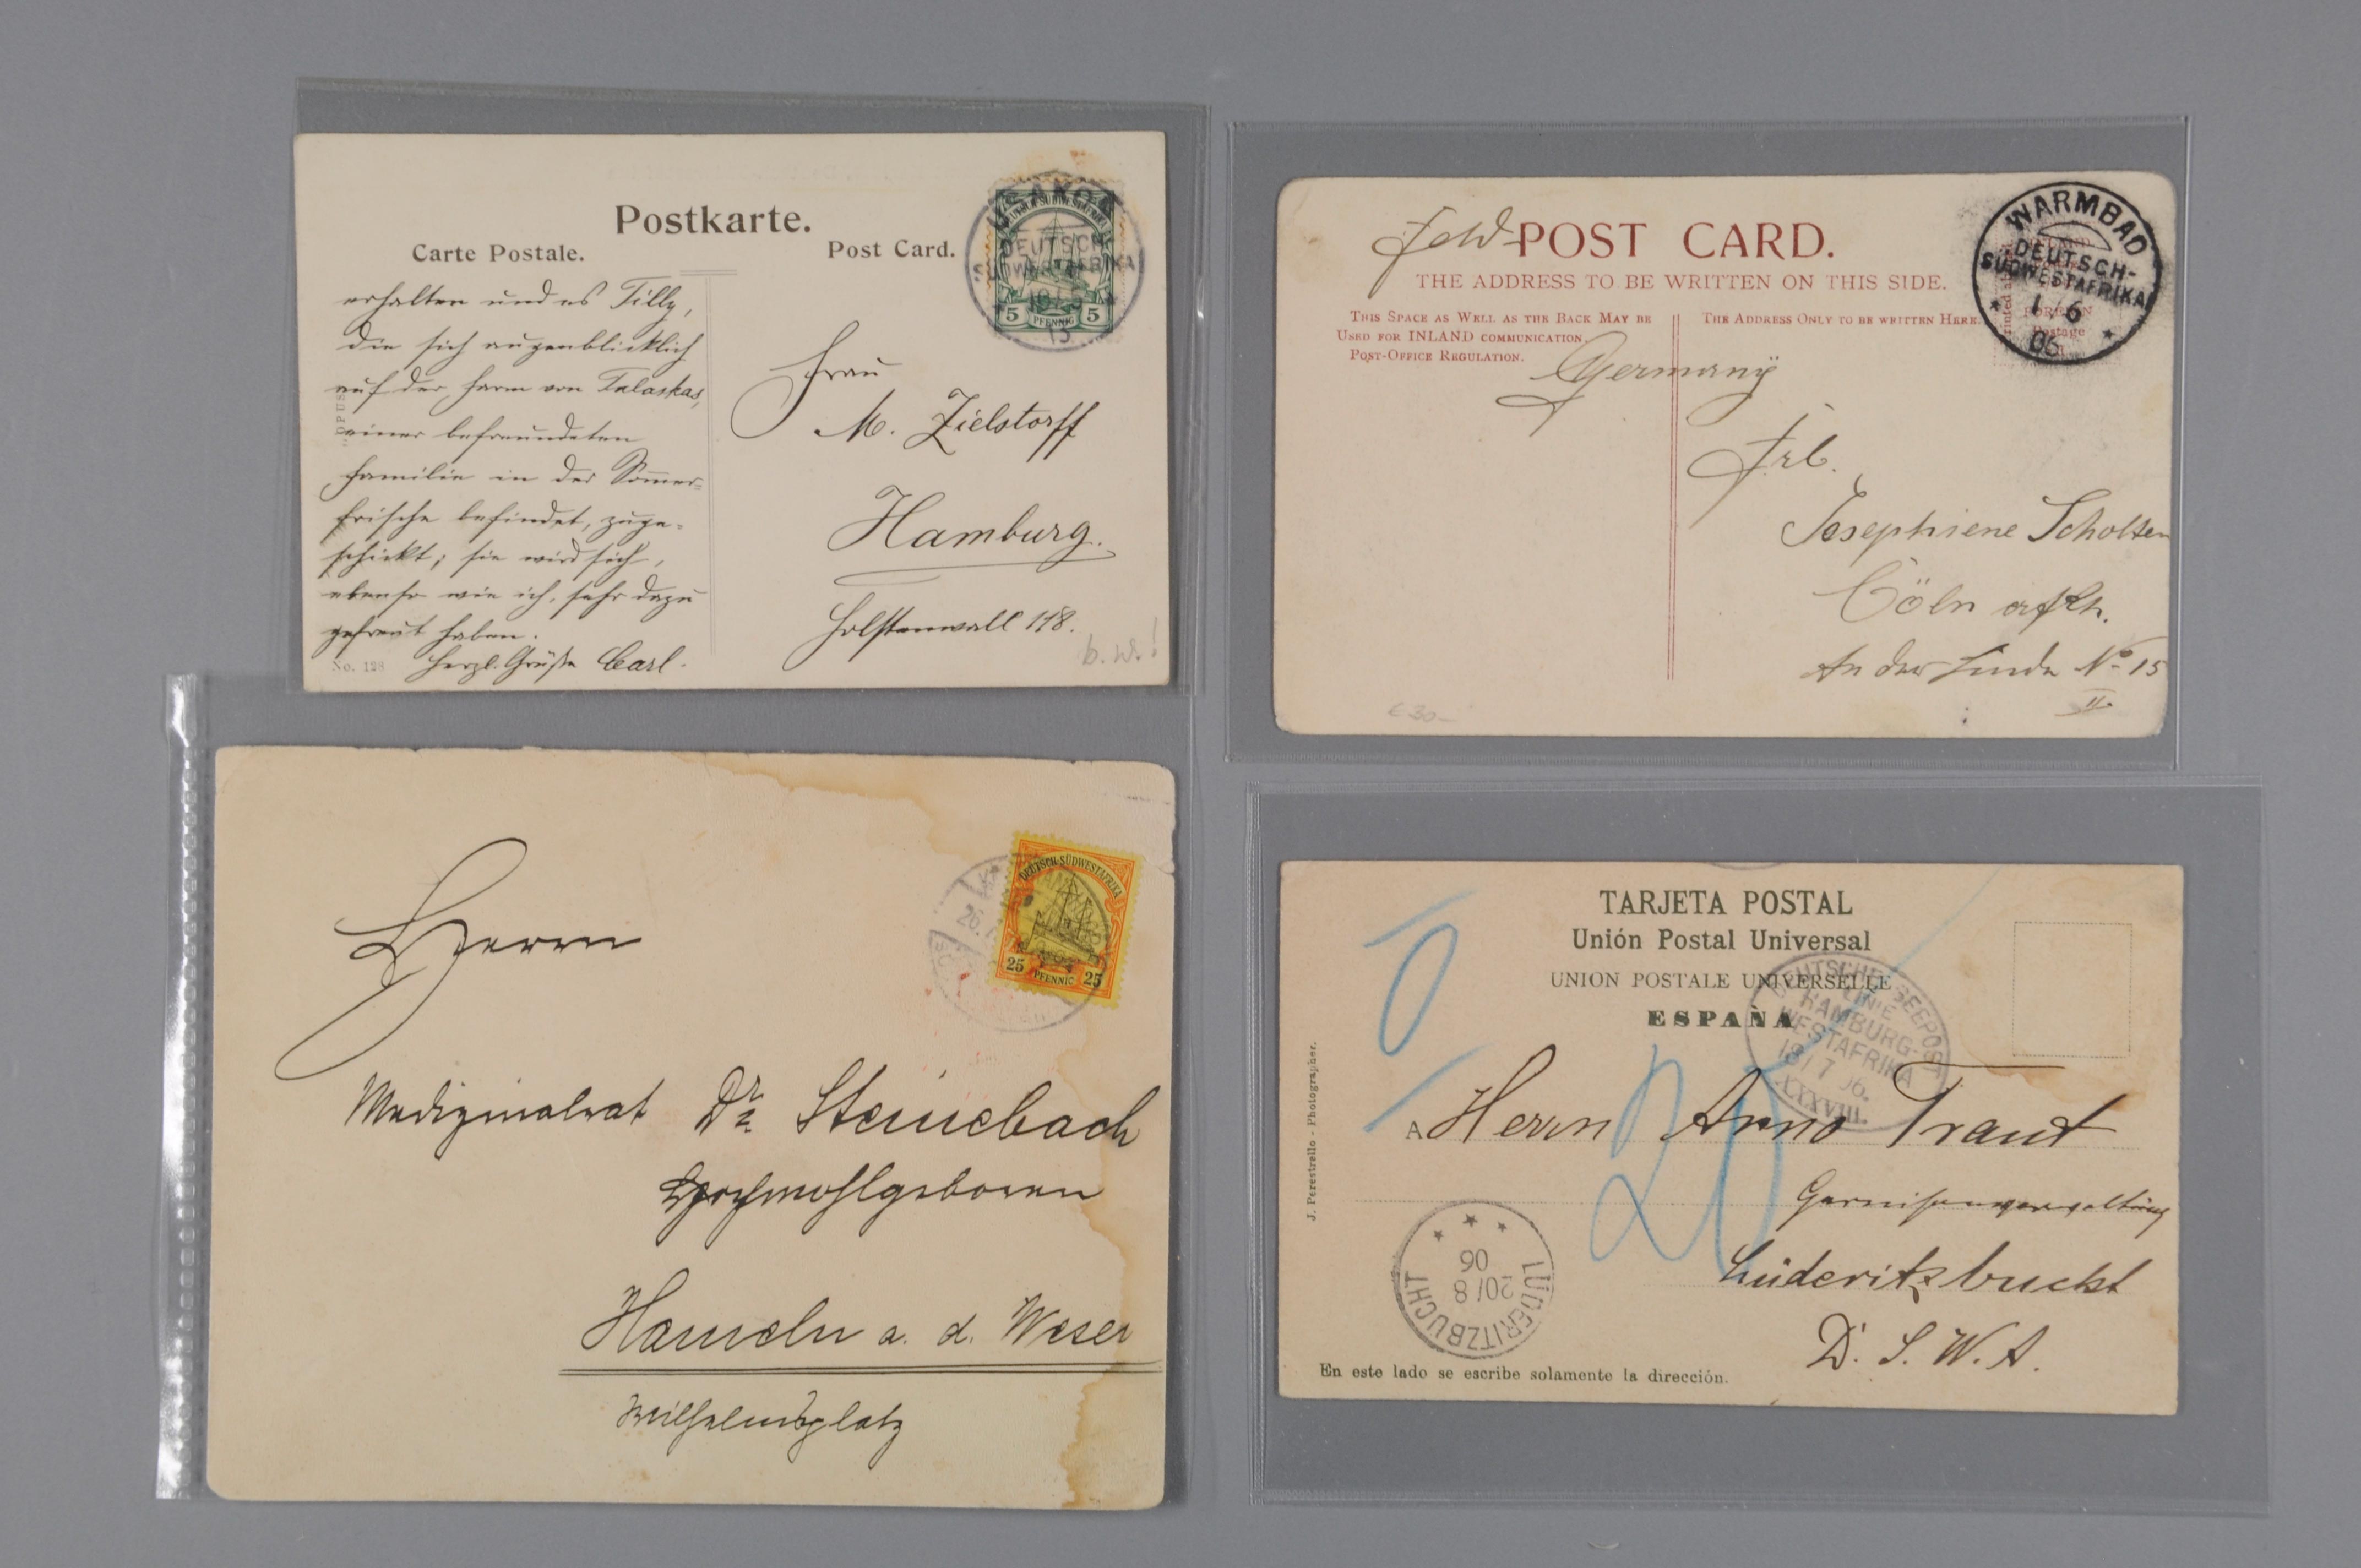 Postkarte.
Carte Postale.
Post Card.
USAKOS
DEUTSCH-
SÜDWESTAFRIKA
13
5 PFENNIG 5
erhalten und es Tilly,
die sich augenblicklich
auf der Farm von
einer befreundeten
Familie in der Sommer-
frische befindet, zuge-
schickt; sie wird sich,
ebenso wie ich, sehr dazu
gefreut haben.
Herzl. Grüße Carl.
No. 128
"OPUS"
Frau
M. Zielstorff
Hamburg.
Holstenwall 118.
b. w.!
POST CARD.
THE ADDRESS TO BE WRITTEN ON THIS SIDE.
THIS SPACE AS WELL AS THE BACK MAY BE
USED FOR INLAND COMMUNICATION.
POST-OFFICE REGULATION.
THE ADDRESS ONLY TO BE WRITTEN HERE.
WARMBAD
DEUTSCH-
SÜDWESTAFRIKA
1/6
06
FOREIGN
Postage
Germany
Frl.
Josephiene Scholten
Cöln a/Rh.
An der Linde No 15
II.
€ 30-
DEUTSCH-SÜDWESTAFRIKA
25 PFENNIG 25
26.
Herrn
Medizinalrat Dr. Steinebach
Hochwohlgeboren
Hameln a. d. Weser
Wilhelmsplatz
TARJETA POSTAL
Unión Postal Universal
UNION POSTALE UNIVERSELLE
ESPAÑA
DEUTSCHE SEEPOST
LINIE
HAMBURG-
WESTAFRIKA
18/7 06.
XXXVIII.
J. Perestrello - Photographer.
A Herrn Arno Traut
Garnisonverwaltung
Lüderitzbucht
D. S. W. A.
20
LÜDERITZBUCHT
20/8
06
En este lado se escribe solamente la dirección.